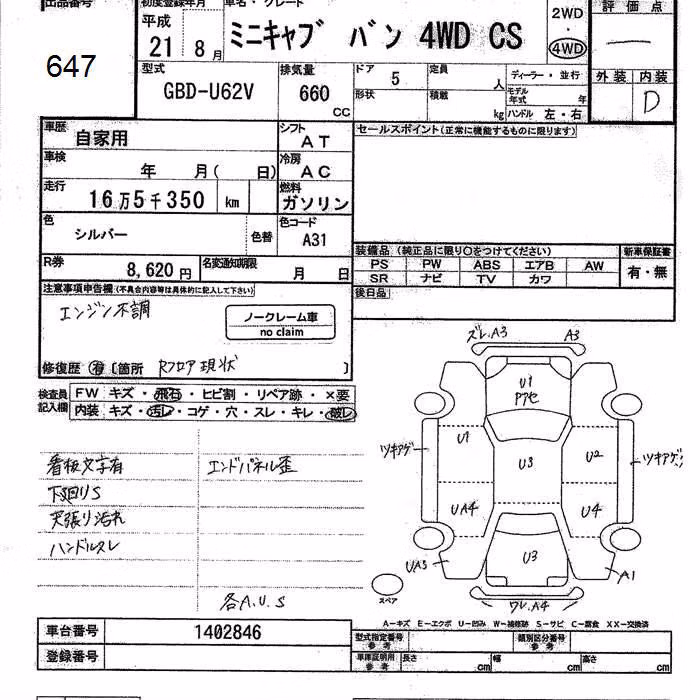 出品番号 初度登録年月 車名・グレード 評価点
647 平成 21 8月 ミニキャブ バン 4WD CS 2WD ・ 4WD
型式 排気量 ドア 5 定員 人 ディーラー・並行 外装 内装
GBD-U62V 660 CC 形状 積載 kg モデル年式 年 D
ハンドル 左・右
車歴 自家用 シフト AT セールスポイント(正常に機能するものに限ります)
車検 年 月( 日) 冷房 AC
走行 16万5千350 km 燃料 ガソリン
色 シルバー 色替 色コード A31
装備品 (純正品に限り○をつけてください) 新車保証書
R券 8,620円 名変通知期限 月 日 PS PW ABS エアB AW 有・無
SR ナビ TV カワ
注意事項申告欄(不具合内容等は具体的に記入して下さい) 後日品
エンジン不調
ノークレーム車
no claim
修復歴 有 [箇所 Rフロア現状 ]
検査員記入欄 FW キズ・飛石・ヒビ割・リペア跡・×要
内装 キズ・汚レ・コゲ・穴・スレ・キレ・破レ
ズレ.A3 A3
U1
ツキアゲ U1 U3 U2 ツキアゲ
UA4 U4
UA3 U3 A1
スペア ワレ.A4
看板文字有 エンドパネル歪
下回りS
天張り汚れ
ハンドルスレ
各A.U.S
A-キズ E-エクボ U-凹み W-補修跡 S-サビ C-腐食 XX-交換済
車台番号 1402846 型式指定番号 参考 類別区分番号 参考
登録番号 車庫証明用 参考 長さ cm 幅 cm 高さ cm